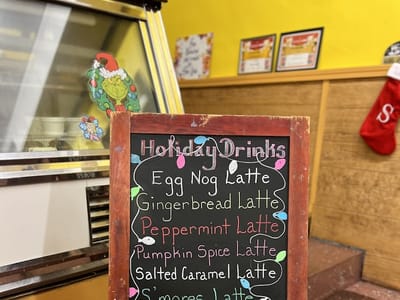 Holiday Drinks
Egg Nog Latte
Gingerbread Latte
Peppermint Latte
Pumpkin Spice Latte
Salted Caramel Latte
S'mores Latte
S